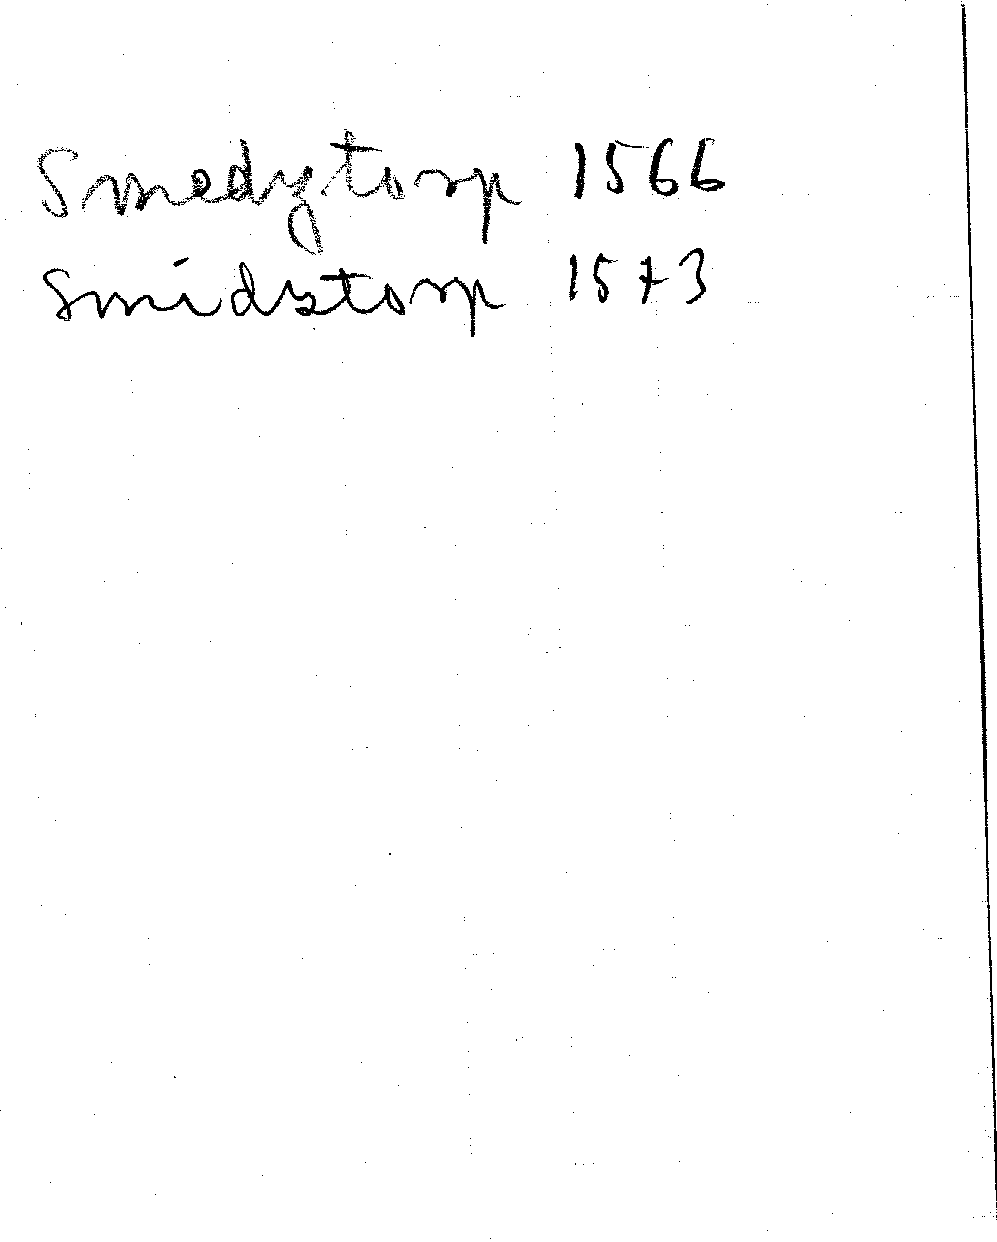 Smedztorp 1566
Smidstorp 1573